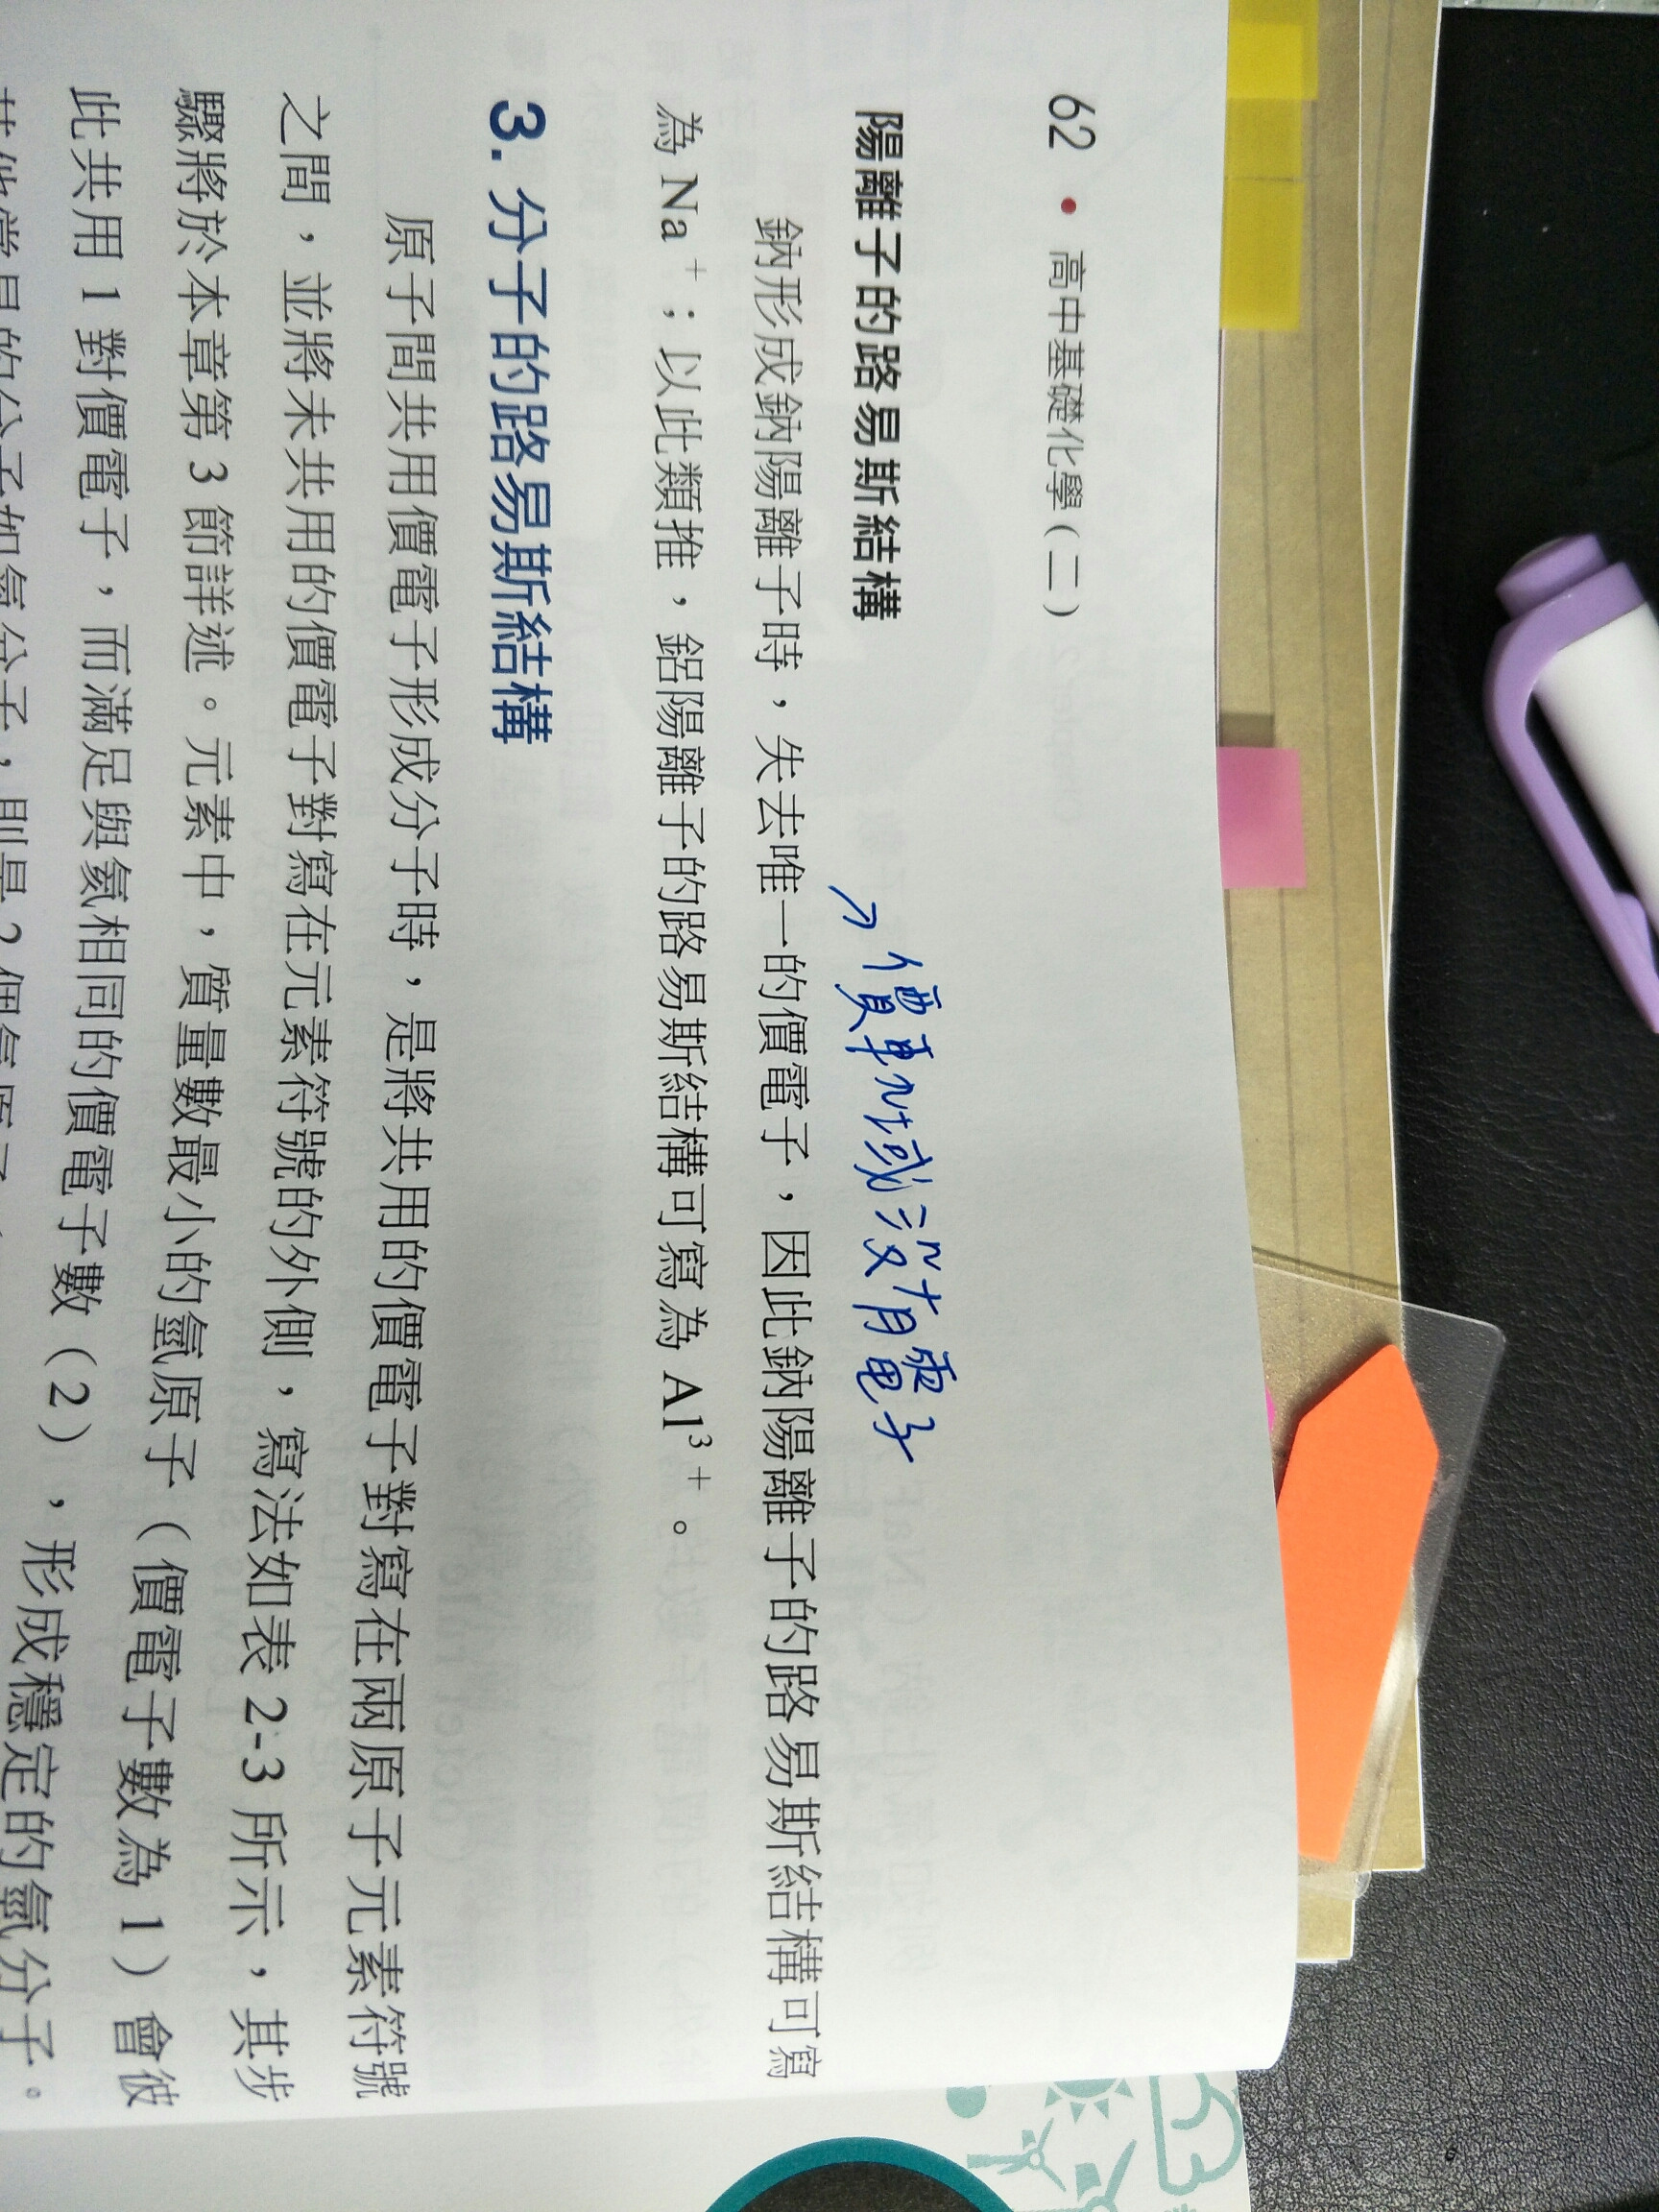 62 • 高中基礎化學(二)
陽離子的路易斯結構
→價軌域沒有電子
鈉形成鈉陽離子時，失去唯一的價電子，因此鈉陽離子的路易斯結構可寫
為 Na⁺；以此類推，鋁陽離子的路易斯結構可寫為 Al³⁺。
3. 分子的路易斯結構
原子間共用價電子形成分子時，是將共用的價電子對寫在兩原子元素符號
之間，並將未共用的價電子對寫在元素符號的外側，寫法如表 2-3 所示，其步
驟將於本章第 3 節詳述。元素中，質量數最小的氫原子（價電子數為 1）會彼
此共用 1 對價電子，而滿足與氦相同的價電子數（2），形成穩定的氫分子。
其他常見的分子如氮分子，則是 2 個氮原子